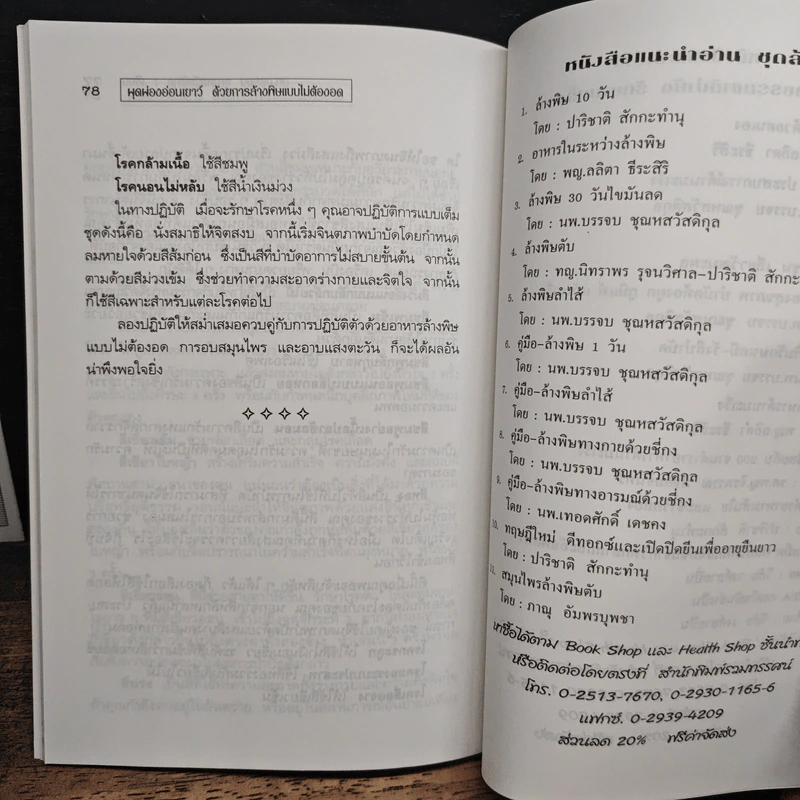 78 ผุดผ่องอ่อนเยาว์ ด้วยการล้างพิษแบบไม่ต้องอด
โรคกล้ามเนื้อ ใช้สีชมพู
โรคนอนไม่หลับ ใช้สีน้ำเงินม่วง
ในทางปฏิบัติ เมื่อจะรักษาโรคหนึ่ง ๆ คุณอาจปฏิบัติการแบบเต็ม
ชุดดังนี้คือ นั่งสมาธิให้จิตสงบ จากนี้เริ่มจินตภาพบำบัดโดยกำหนด
ลมหายใจด้วยสีส้มก่อน ซึ่งเป็นสีที่บำบัดอาการไม่สบายขั้นต้น จากนั้น
ตามด้วยสีม่วงเข้ม ซึ่งช่วยทำความสะอาดร่างกายและจิตใจ จากนั้น
ก็ใช้สีเฉพาะสำหรับแต่ละโรคต่อไป
ลองปฏิบัติให้สม่ำเสมอควบคู่กับการปฏิบัติตัวด้วยอาหารล้างพิษ
แบบไม่ต้องอด การอบสมุนไพร และอาบแสงตะวัน ก็จะได้ผลอัน
น่าพึงพอใจยิ่ง
หนังสือแนะนำอ่าน ชุดล้
1. ล้างพิษ 10 วัน
โดย : ปาริชาติ สักกะทำนุ
2. อาหารในระหว่างล้างพิษ
โดย : พญ.ลลิตา ธีระสิริ
3. ล้างพิษ 30 วันไขมันลด
โดย : นพ.บรรจบ ชุณหสวัสดิกุล
4. ล้างพิษตับ
โดย : ทญ.นิทราพร รุจนวิศาล-ปาริชาติ สักกะ
5. ล้างพิษลำไส้
โดย : นพ.บรรจบ ชุณหสวัสดิกุล
6. คู่มือ-ล้างพิษ 1 วัน
โดย : นพ.บรรจบ ชุณหสวัสดิกุล
7. คู่มือ-ล้างพิษลำไส้
โดย : นพ.บรรจบ ชุณหสวัสดิกุล
8. คู่มือ-ล้างพิษทางกายด้วยชี่กง
โดย : นพ.บรรจบ ชุณหสวัสดิกุล
9. คู่มือ-ล้างพิษทางอารมณ์ด้วยชี่กง
โดย : นพ.เทอดศักดิ์ เดชคง
10. ทฤษฎีใหม่ ดีทอกซ์และเปิดปิดยีนเพื่ออายุยืนยาว
โดย : ปาริชาติ สักกะทำนุ
11. สมุนไพรล้างพิษตับ
โดย : ภาณุ อัมพรบุพชา
หาซื้อได้ตาม Book Shop และ Health Shop ชั้นนำท
หรือติดต่อโดยตรงที่ สำนักพิมพ์รวมทรรศน์
โทร. 0-2513-7670, 0-2930-1165-6
แฟกซ์. 0-2939-4209
ส่วนลด 20% ฟรีค่าจัดส่ง